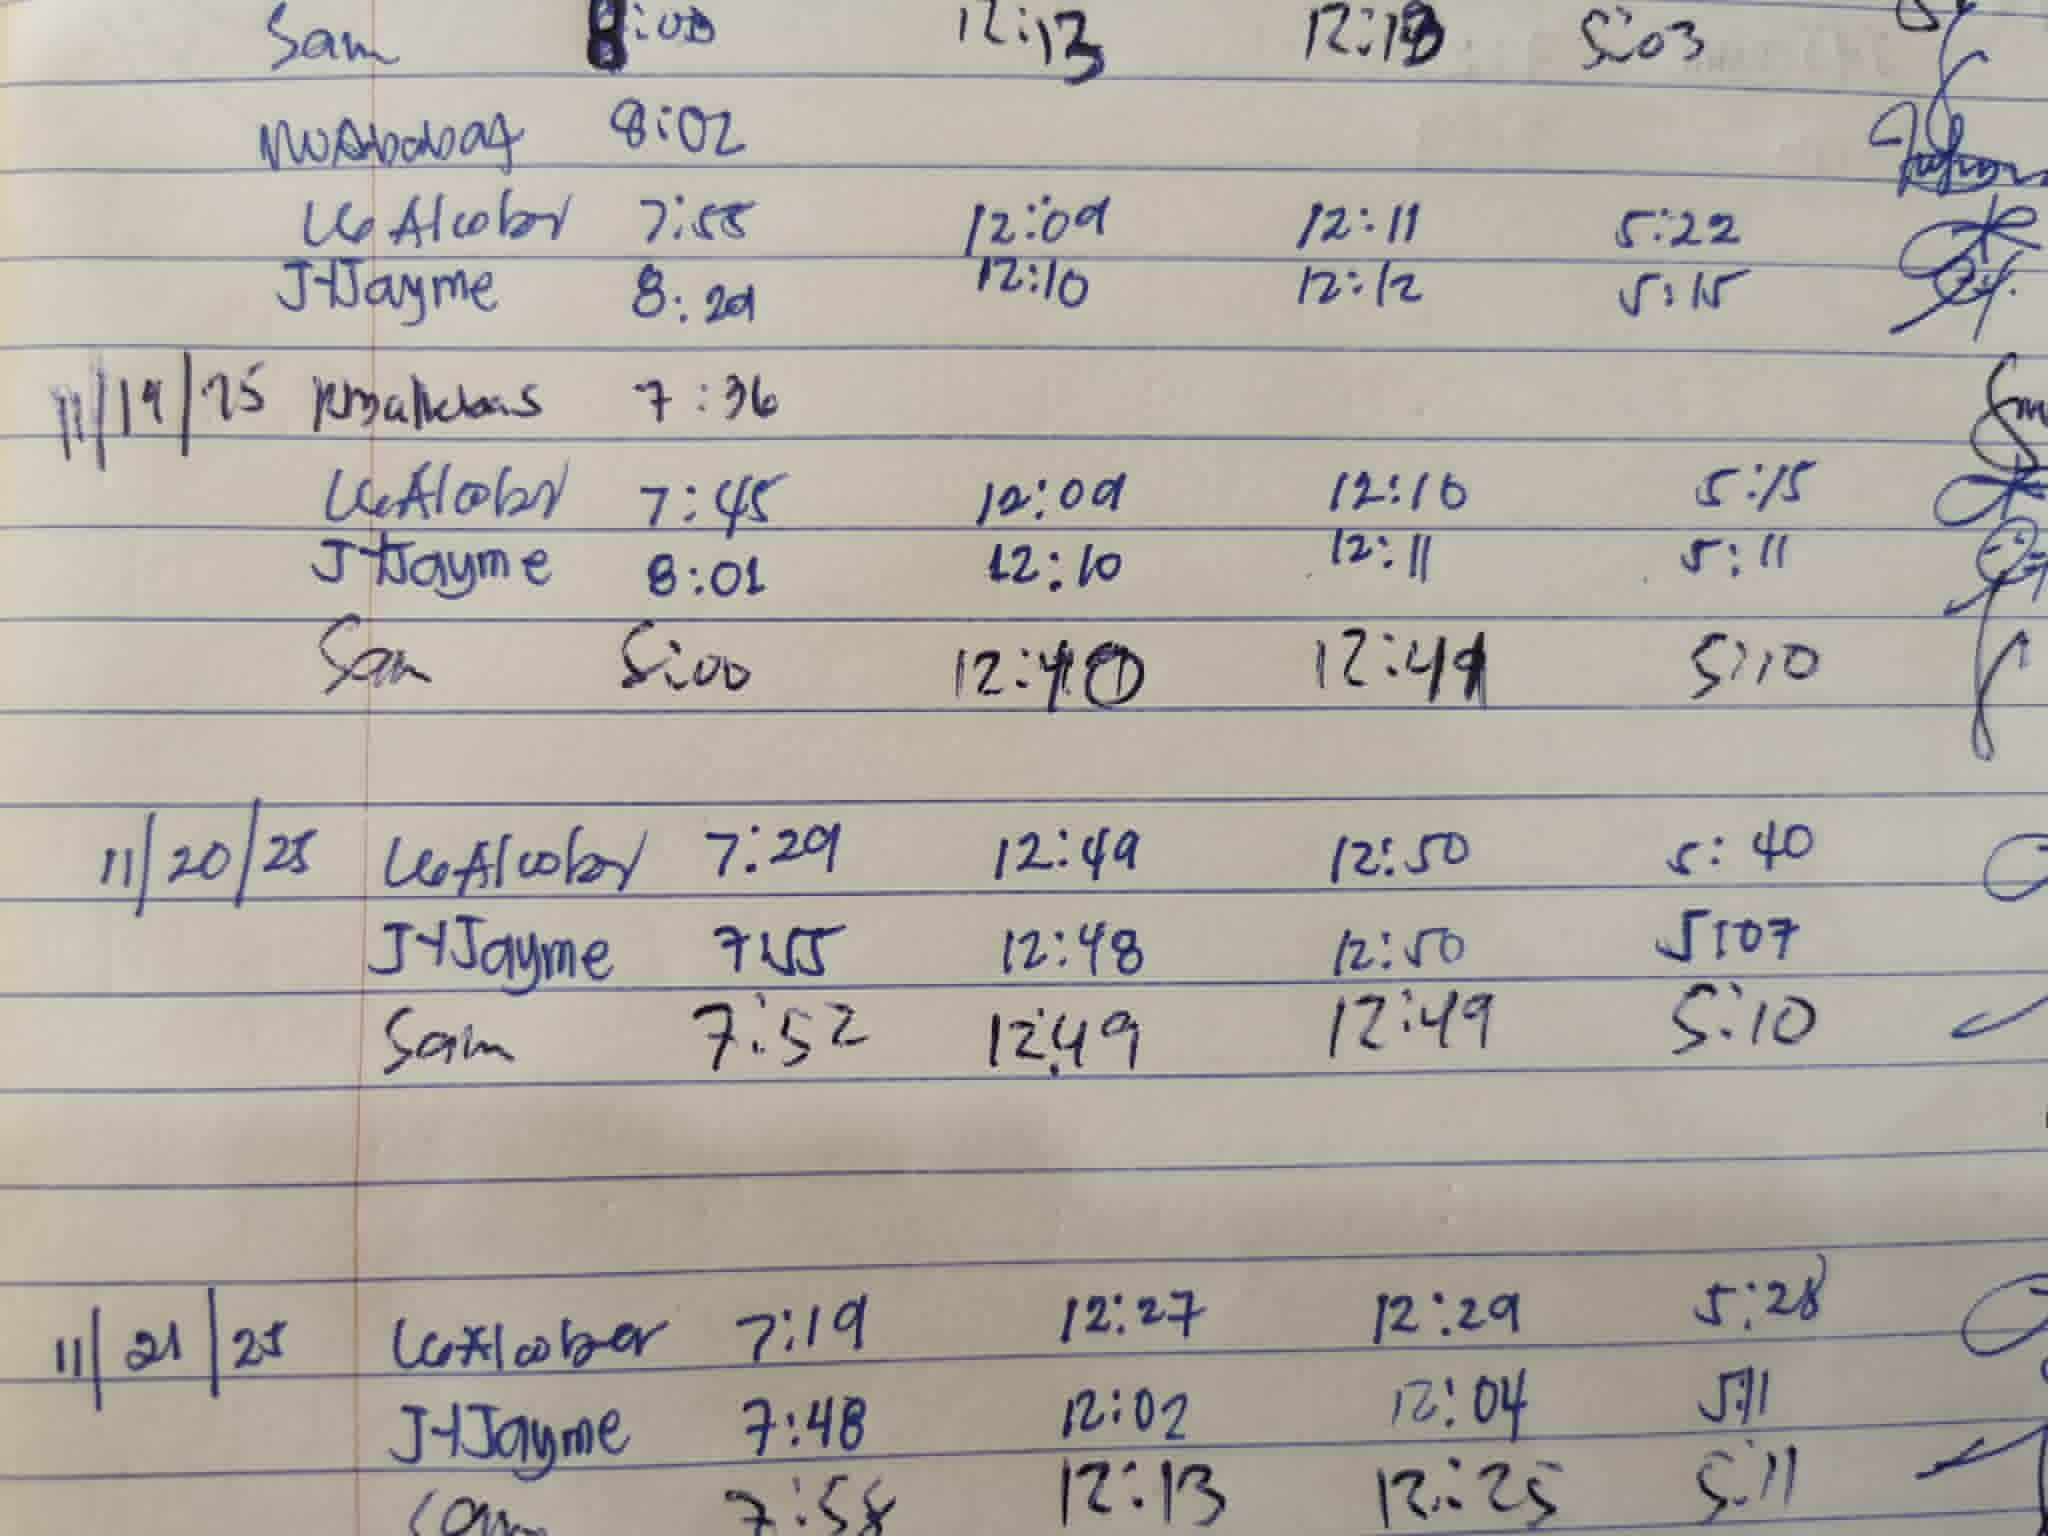 Sam 8:00 12:13 12:18 5:03
8:02
LGAlcober 7:55 12:09 12:11 5:22
JHJayme 8:29 12:10 12:12 5:15
11/19/25 7:36
LGAlcober 7:45 12:09 12:10 5:15
JHJayme 8:01 12:10 12:11 5:11
Sam 12:40 12:41 5:10
11/20/25 LGAlcober 7:29 12:49 12:50 5:40
JHJayme 7:55 12:48 12:50 5:07
Sam 7:52 12:49 12:49 5:10
11/21/25 LGAlcober 7:19 12:27 12:29 5:28
JHJayme 7:48 12:02 12:04 5:11
Sam 7:58 12:13 12:25 5:11